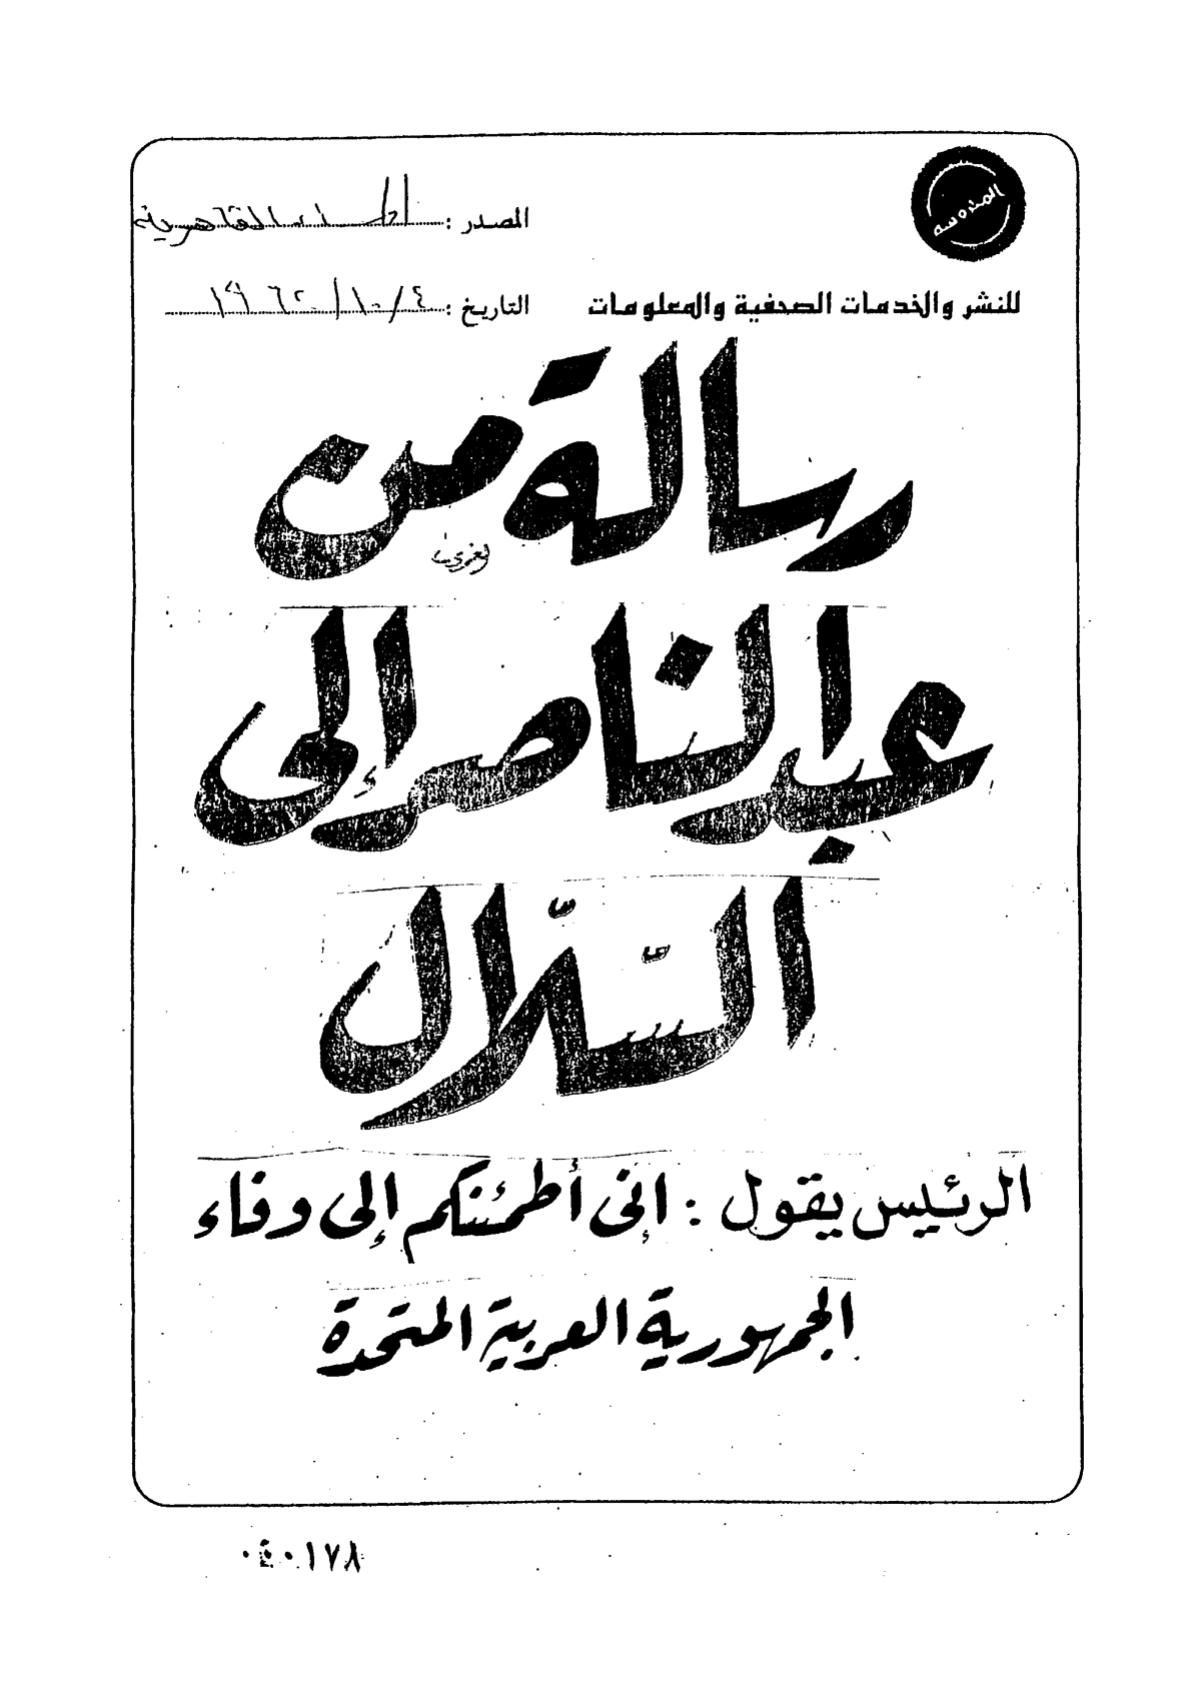 المدرسة
المصدر : المساء القاهرية
للنشر والخدمات الصحفية والمعلومات
التاريخ : ٤/١٠/١٩٦٢
رسالة من
عبد الناصر إلى
السّلّال
الرئيس يقول : إنى أطمئنكم إلى وفاء
الجمهورية العربية المتحدة
٠٤٠١٧٨